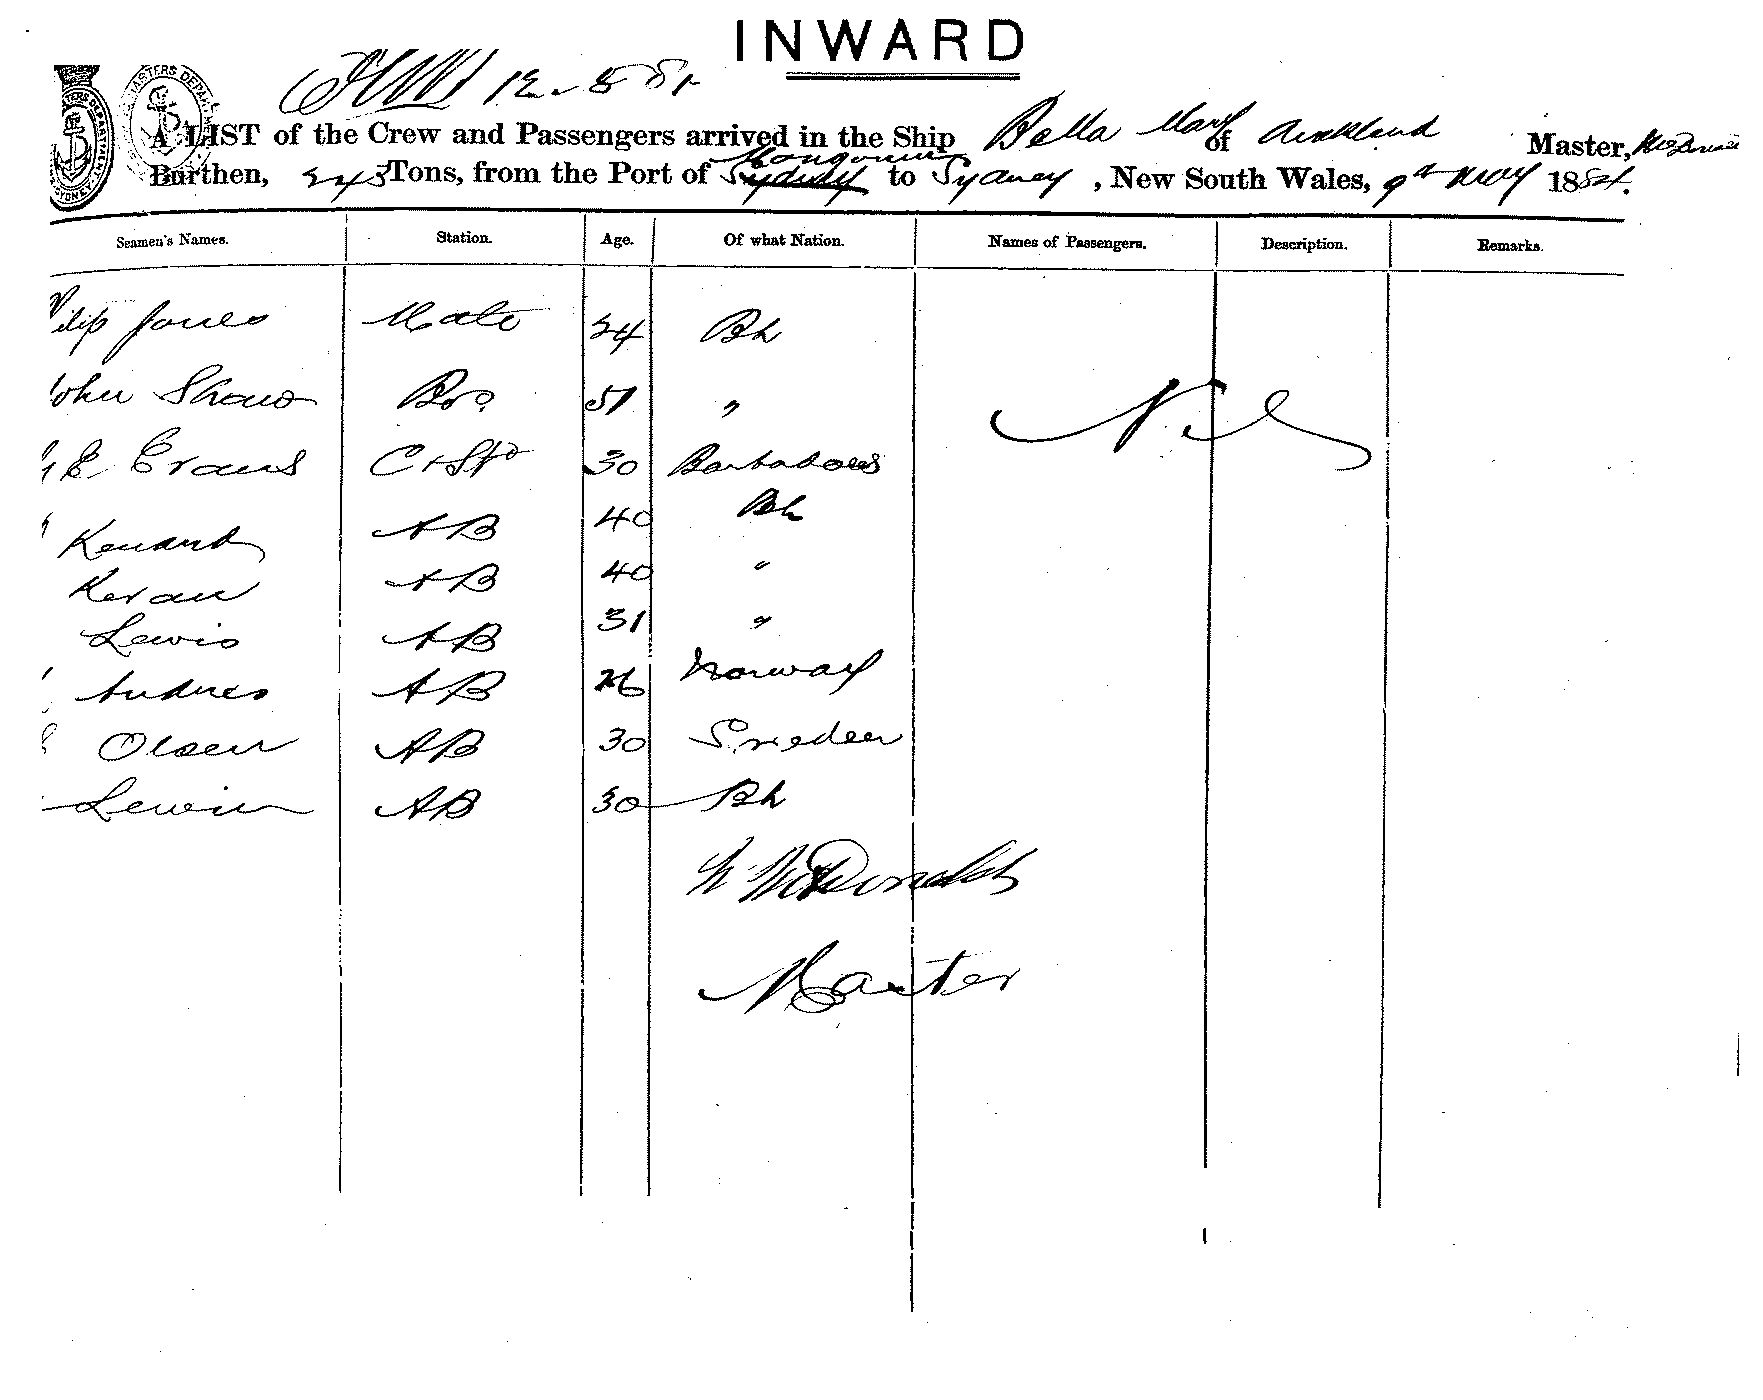 INWARD
12-5-81
A LIST of the Crew and Passengers arrived in the Ship Bella Mary of Auckland Master, McDonald
Burthen, 245 Tons, from the Port of Mongonui Sydney to Sydney, New South Wales, 9th May 1881.
Seamen's Names. Station. Age. Of what Nation. Names of Passengers. Description. Remarks.
ilip Jones Mate 24 Bh
ohn Shaw Bo. 51 "
E Evans C & Std 30 Barbadoes
Nil
AB 40 Bh
Keran AB 40 "
Lewis AB 31 "
Andres AB 26 Norway
Olsen AB 30 Sweden
Lewin AB 30 Bh
McDonald
Master